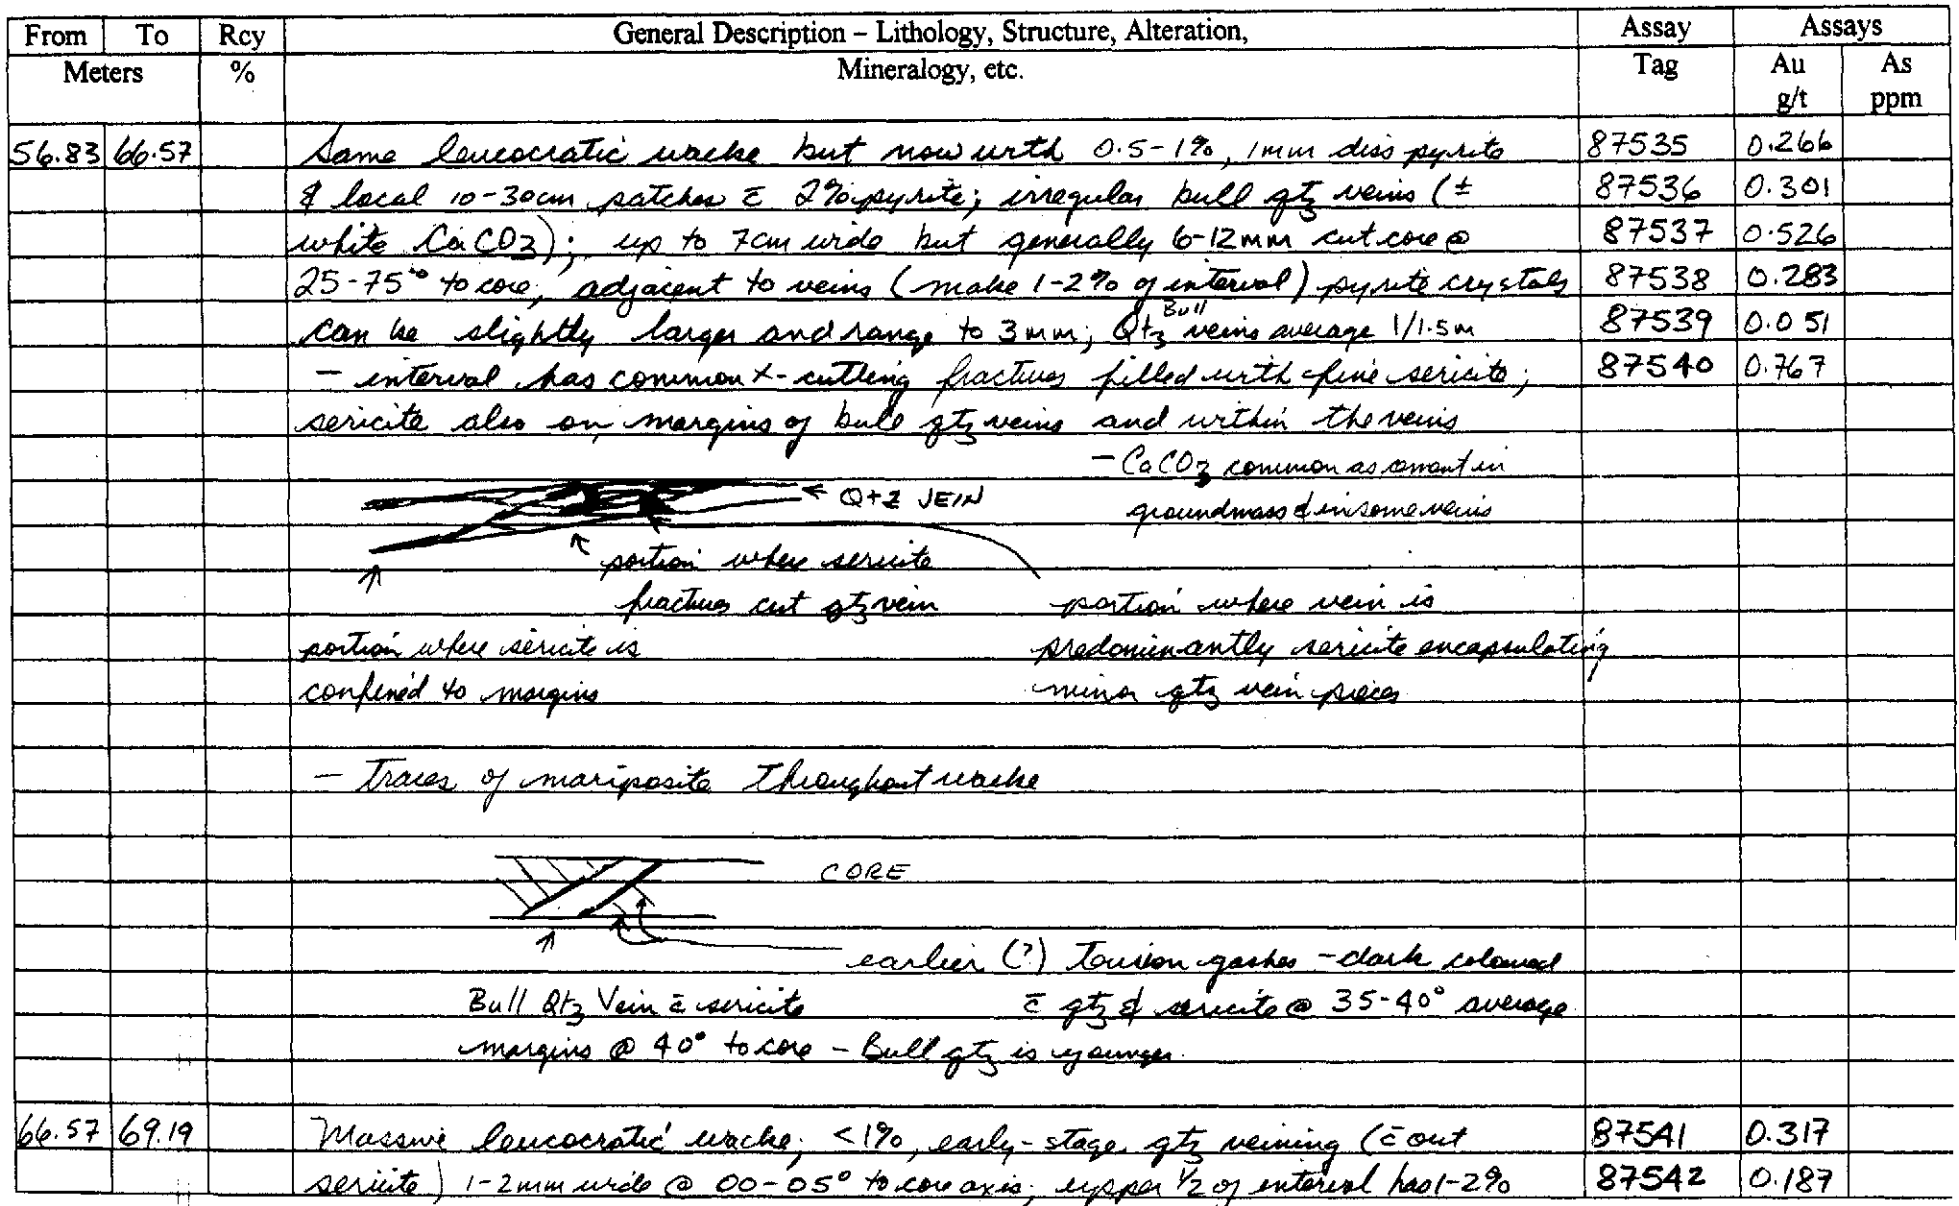 From To Rcy General Description – Lithology, Structure, Alteration, Assay Assays
Meters % Mineralogy, etc. Tag Au As
g/t ppm
56.83 66.57 Same leucocratic wacke but now with 0.5-1%, 1mm diss pyrite 87535 0.266
& local 10-30cm patches c̄ 2% pyrite; irregular bull qtz veins (± 87536 0.301
white CaCO3); up to 7cm wide but generally 6-12mm cut core @ 87537 0.526
25-75° to core; adjacent to veins (make 1-2% of interval) pyrite crystals 87538 0.283
can be slightly larger and range to 3mm; Bull Qtz veins average 1/1.5m 87539 0.051
- interval has common x-cutting fractures filled with fine sericite; 87540 0.767
sericite also on margins of bull qtz veins and within the veins
- CaCO3 common as cement in
← QTZ VEIN
groundmass & in some veins
portion where sericite
fractures cut qtz vein
portion where vein is
portion where sericite is
predominantly sericite encapsulating
confined to margins
minor qtz vein pieces
- Traces of mariposite throughout wacke
CORE
earlier (?) tension gashes - dark coloured
Bull Qtz Vein c̄ sericite
c̄ qtz & sericite @ 35-40° average
margins @ 40° to core - Bull qtz is younger.
66.57 69.19 Massive leucocratic wacke; <1%, early-stage qtz veining (c̄out 87541 0.317
sericite) 1-2mm wide @ 00-05° to core axis; upper 1/2 of interval has 1-2% 87542 0.187